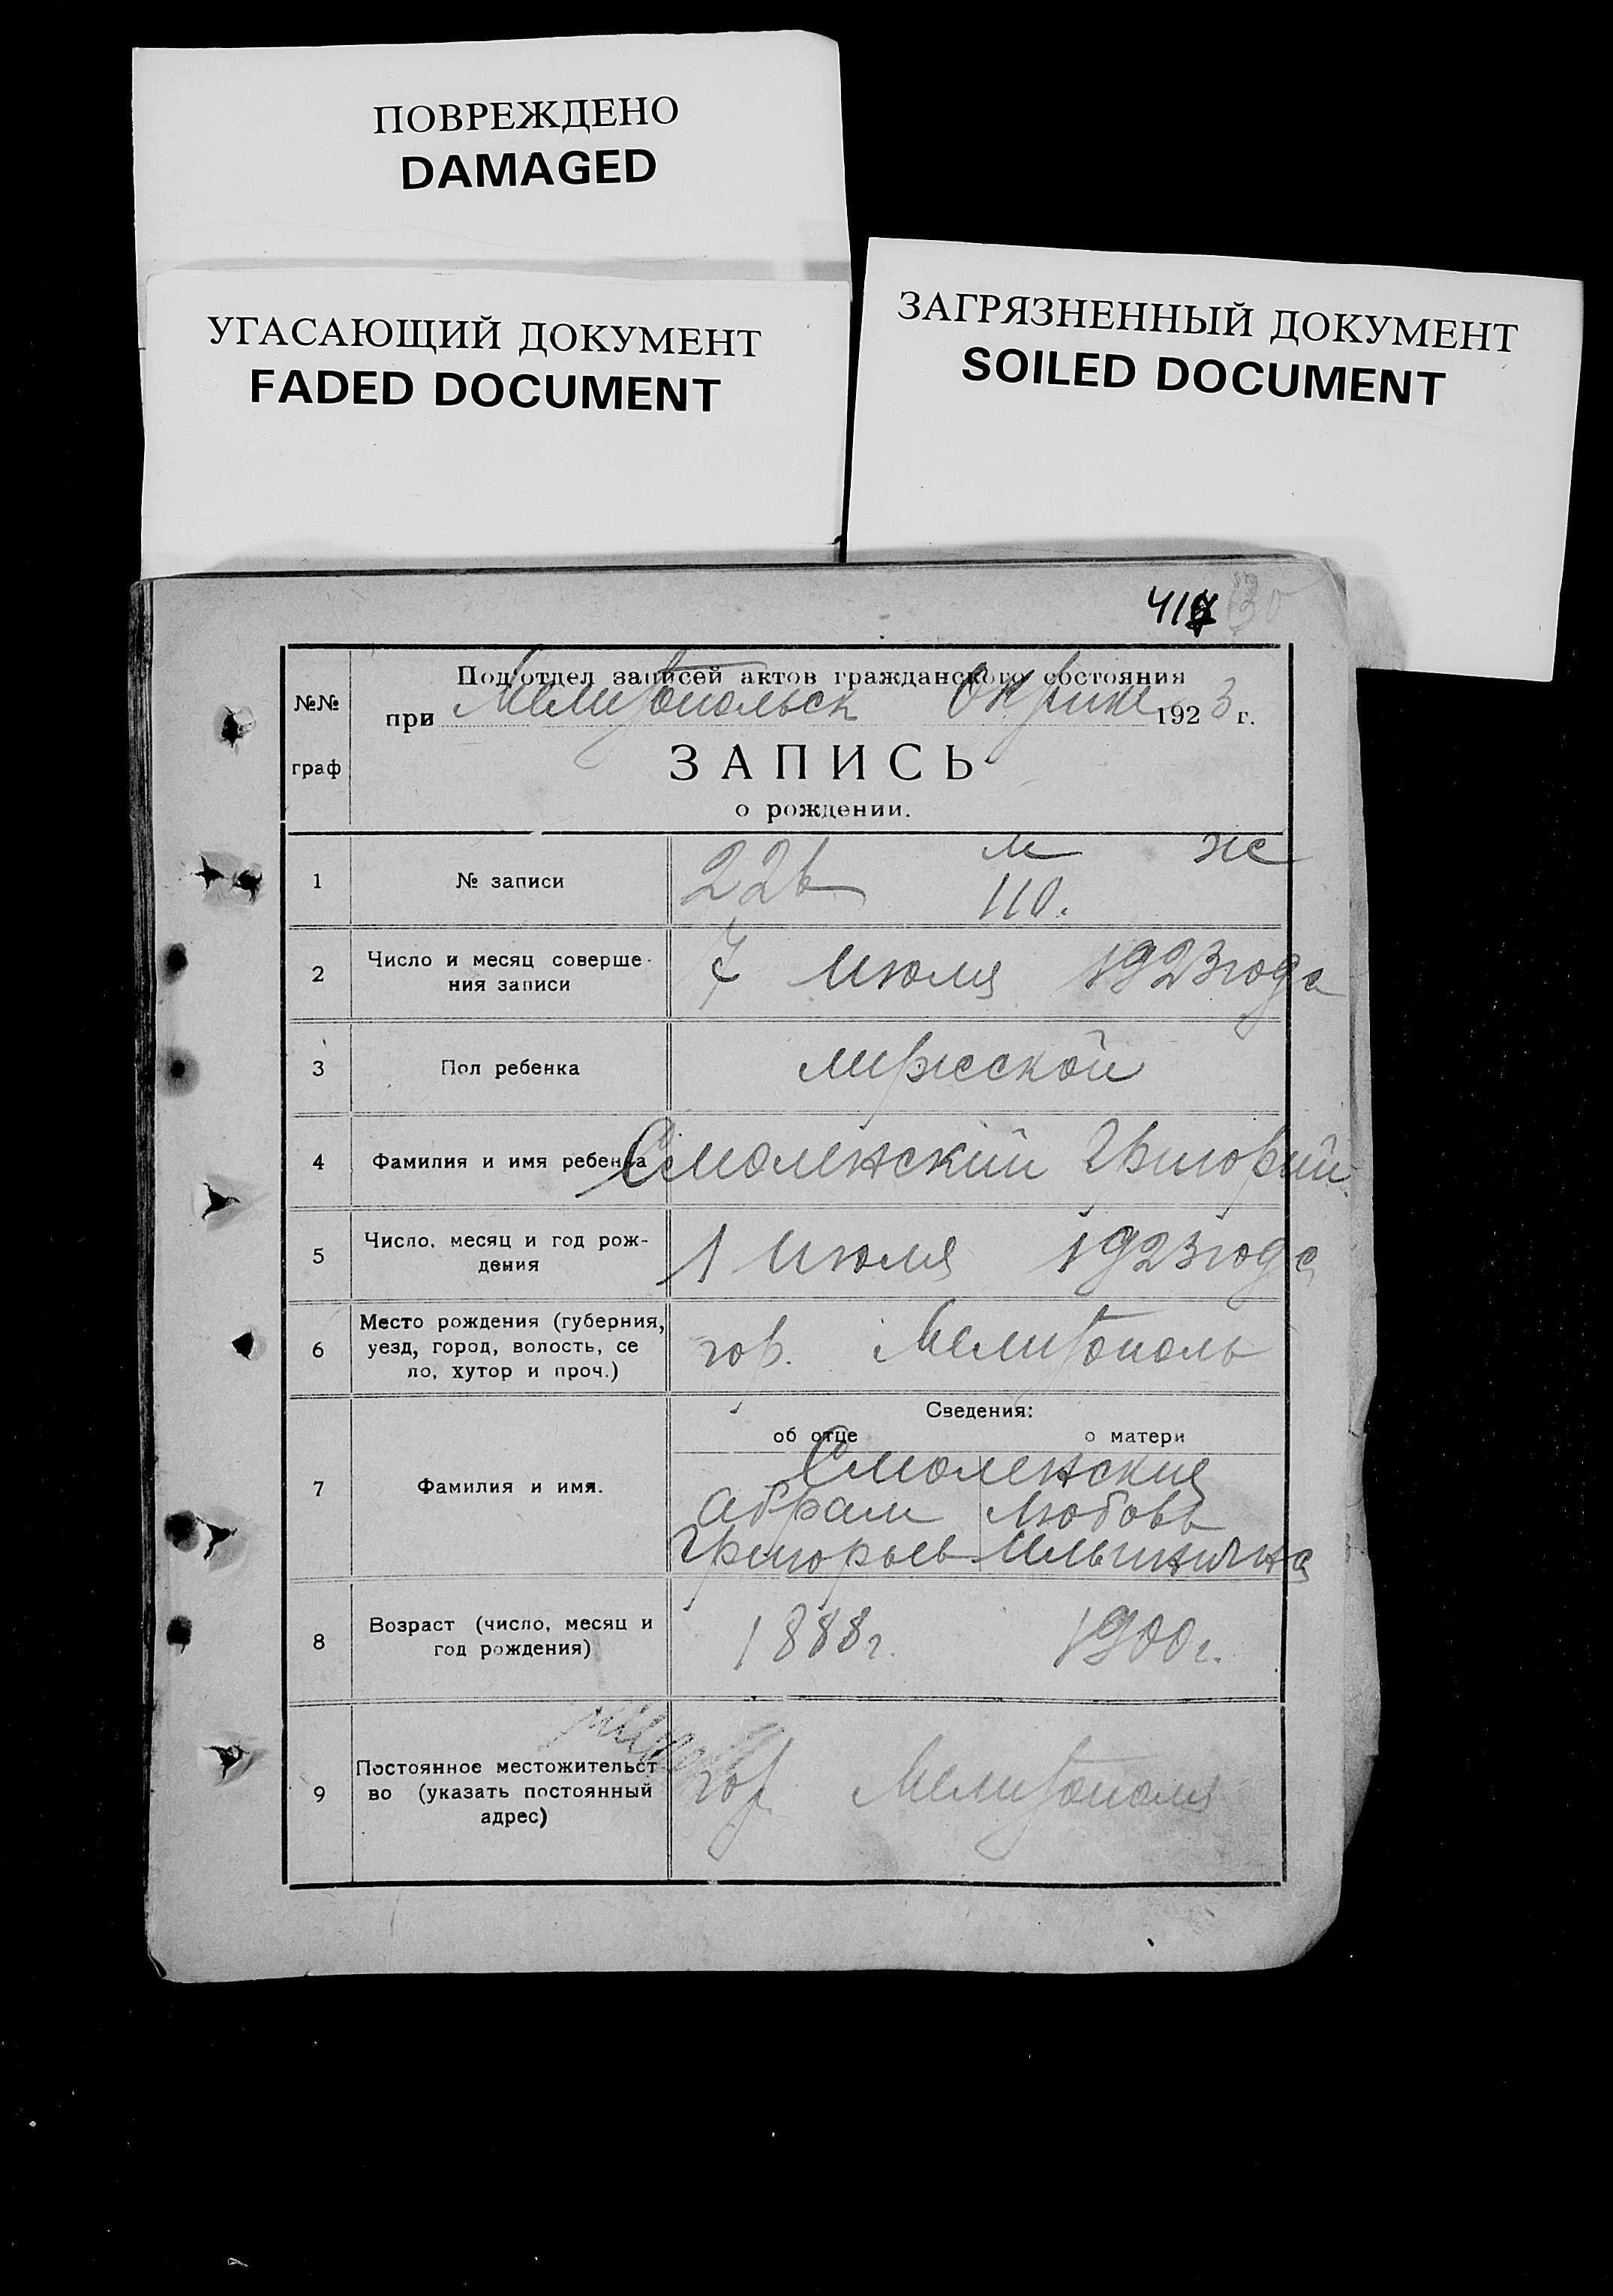 ПОВРЕЖДЕНО
DAMAGED
УГАСАЮЩИЙ ДОКУМЕНТ
FADED DOCUMENT
ЗАГРЯЗНЕННЫЙ ДОКУМЕНТ
SOILED DOCUMENT
№№ граф
Подʼотдел записей актов гражданского состояния
при Мелитопольск Окрике 1923 г.
ЗАПИСЬ
о рождении.
м ж
1 № записи 226 110.
2 Число и месяц соверше-
ния записи 7 Июля 1923 года
3 Пол ребенка мужеской
4 Фамилия и имя ребенка Смоленский Григорий
5 Число, месяц и год рож-
дения 1 Июля 1923 года
6 Место рождения (губерния,
уезд, город, волость, се
ло, хутор и проч.) гор. Мелитополь
Сведения:
об отце о матери
Смоленския
7 Фамилия и имя. Абрам Любовь
Григорьев Ильинична
8 Возраст (число, месяц и
год рождения) 1888 г. 1900 г.
9 Постоянное местожительст
во (указать постоянный
адрес) гор Мелитополя